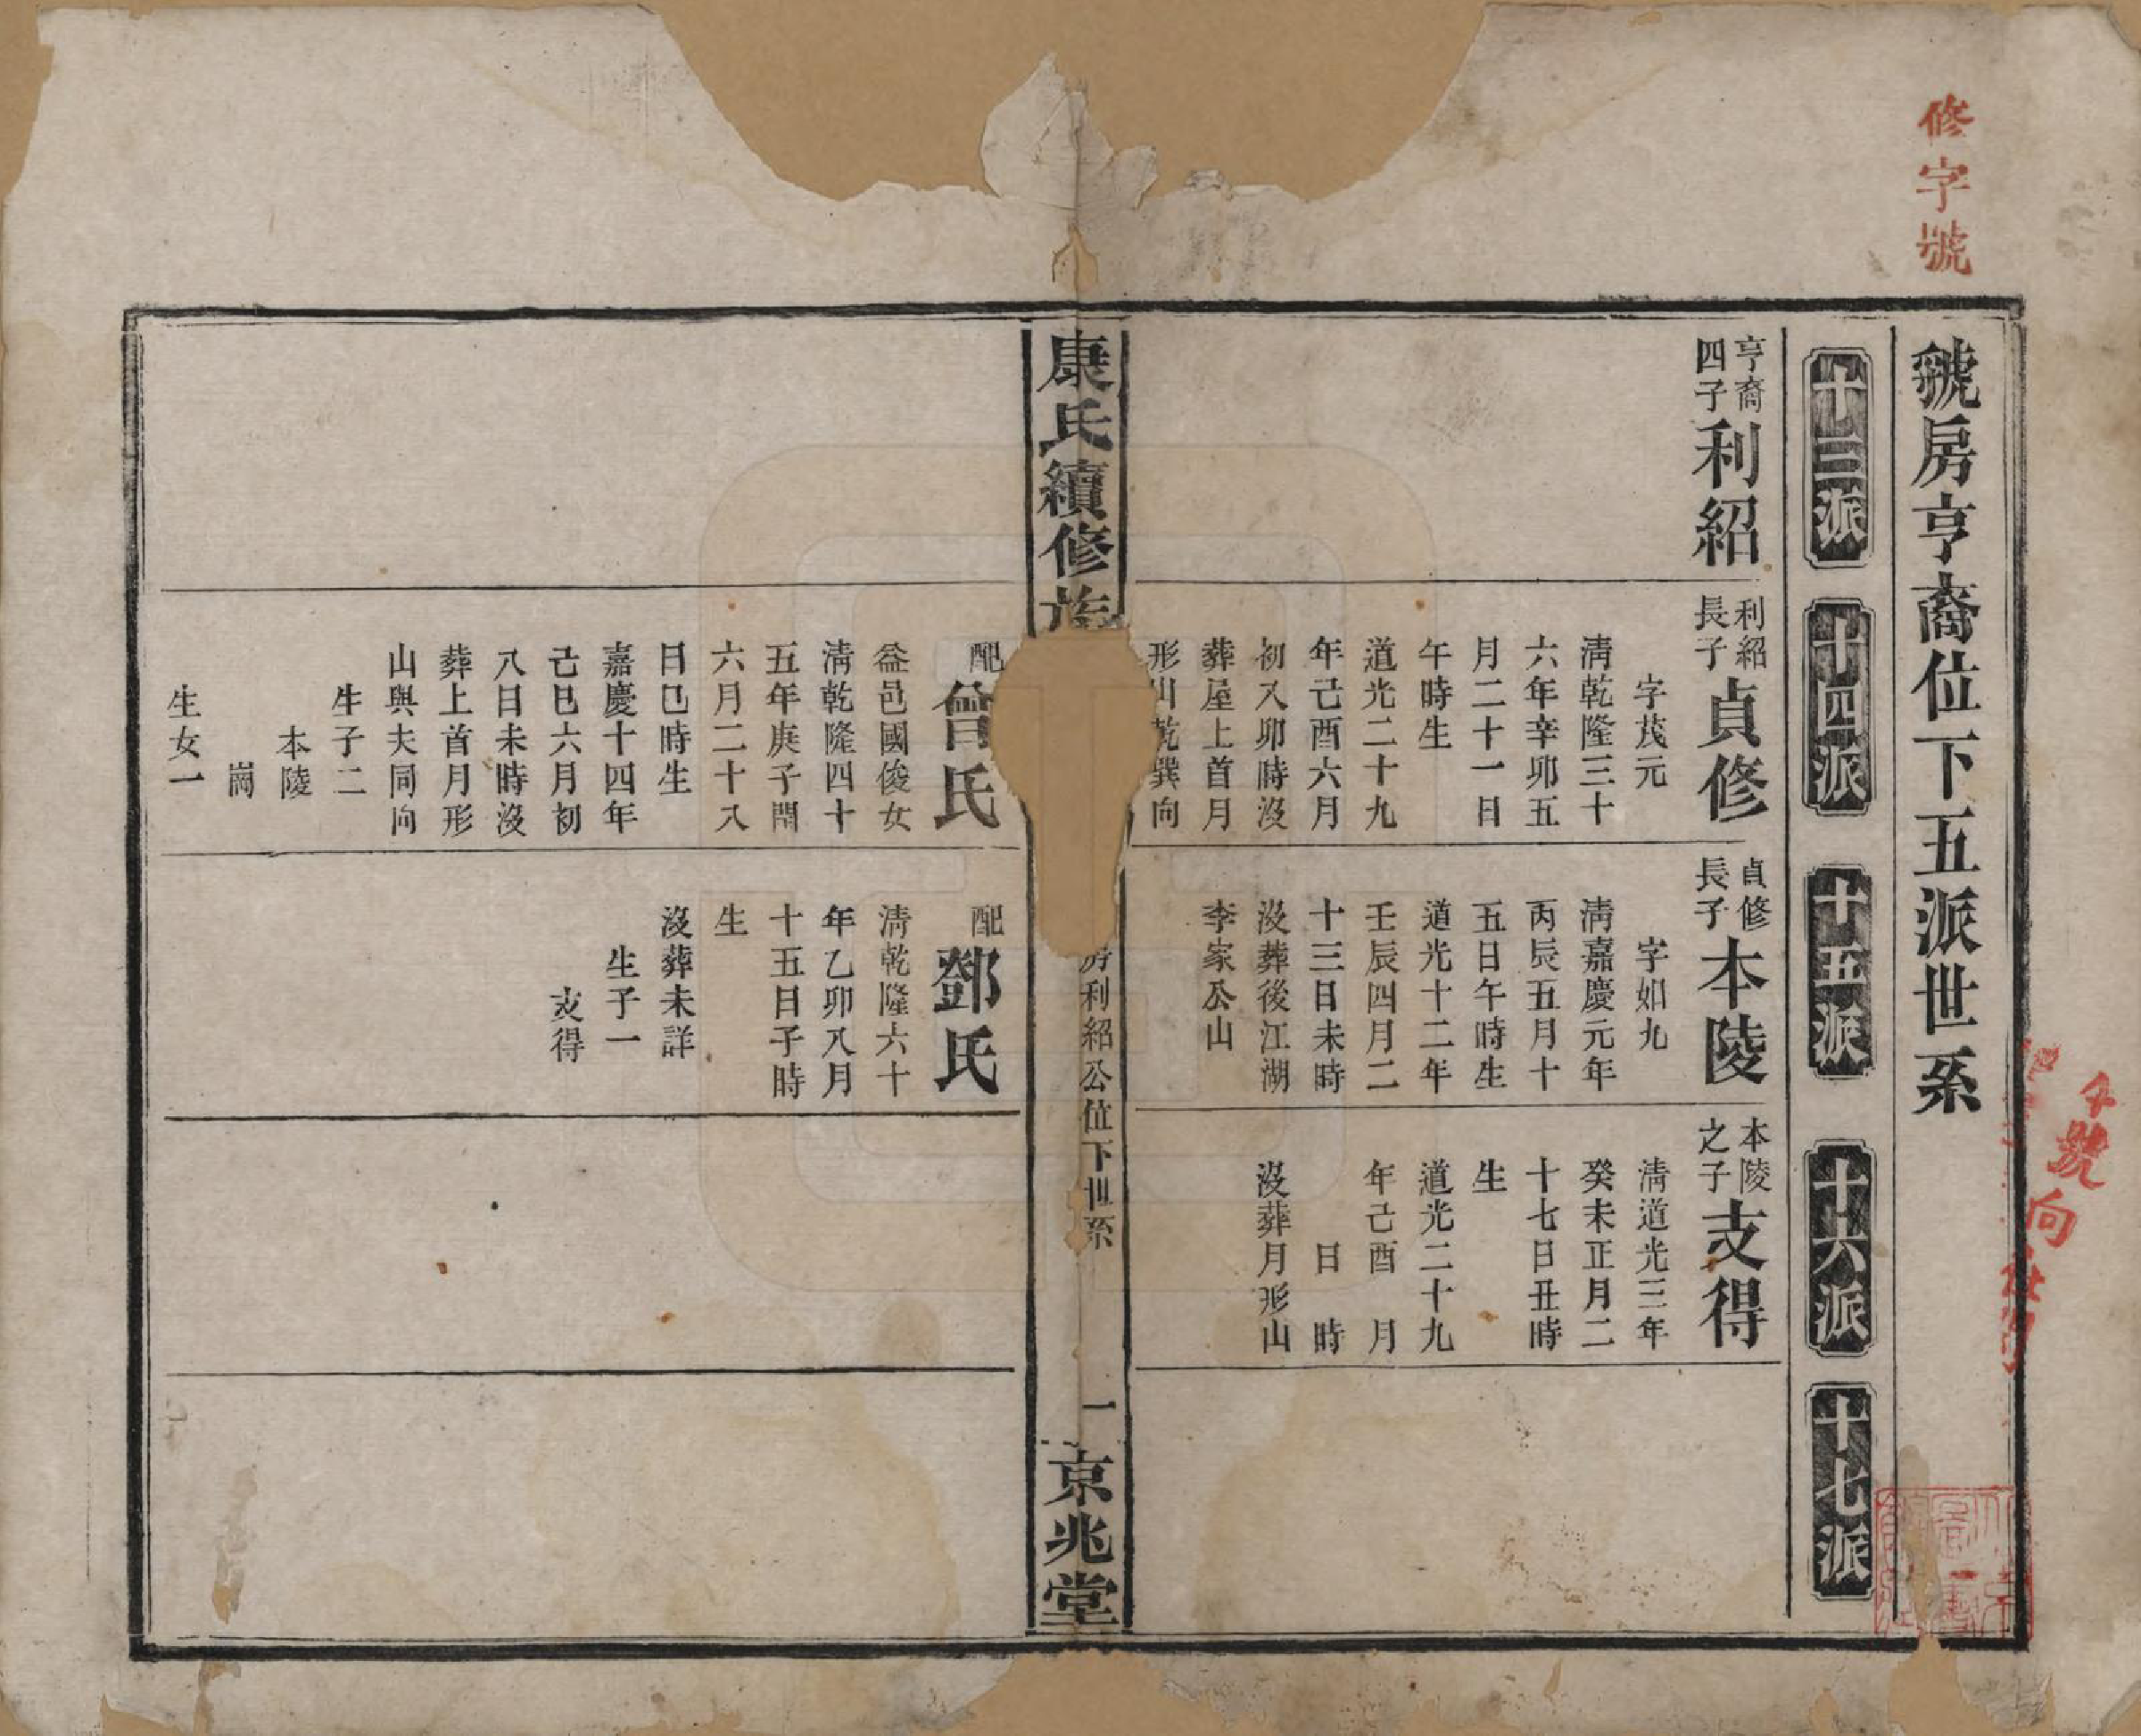 修字號
號房亨裔位下五派世系
十三派
十四派
十五派
十六派
十七派
亨裔
四子
利紹
利紹
長子
貞修
字茂元
清乾隆三十
六年辛卯五
月二十一日
午時生
道光二十九
年己酉六月
初八卯時沒
葬屋上首月
形山乾巽向
貞修
長子
本陵
字如九
清嘉慶元年
丙辰五月十
五日午時生
道光十二年
壬辰四月二
十三日未時
沒葬後江湖
李家公山
本陵
之子
支得
清道光三年
癸未正月二
十七日丑時
生
道光二十九
年己酉 月
日 時
沒葬月形山
康氏續修族
房利紹公位下世系
一
京兆堂
配
曾氏
益邑國俊女
清乾隆四十
五年庚子閏
六月二十八
日巳時生
嘉慶十四年
己巳六月初
八日未時沒
葬上首月形
山與夫同向
生子二
本陵
生女一
配
鄧氏
清乾隆六十
年乙卯八月
十五日子時
生
沒葬未詳
生子一
支得
號向